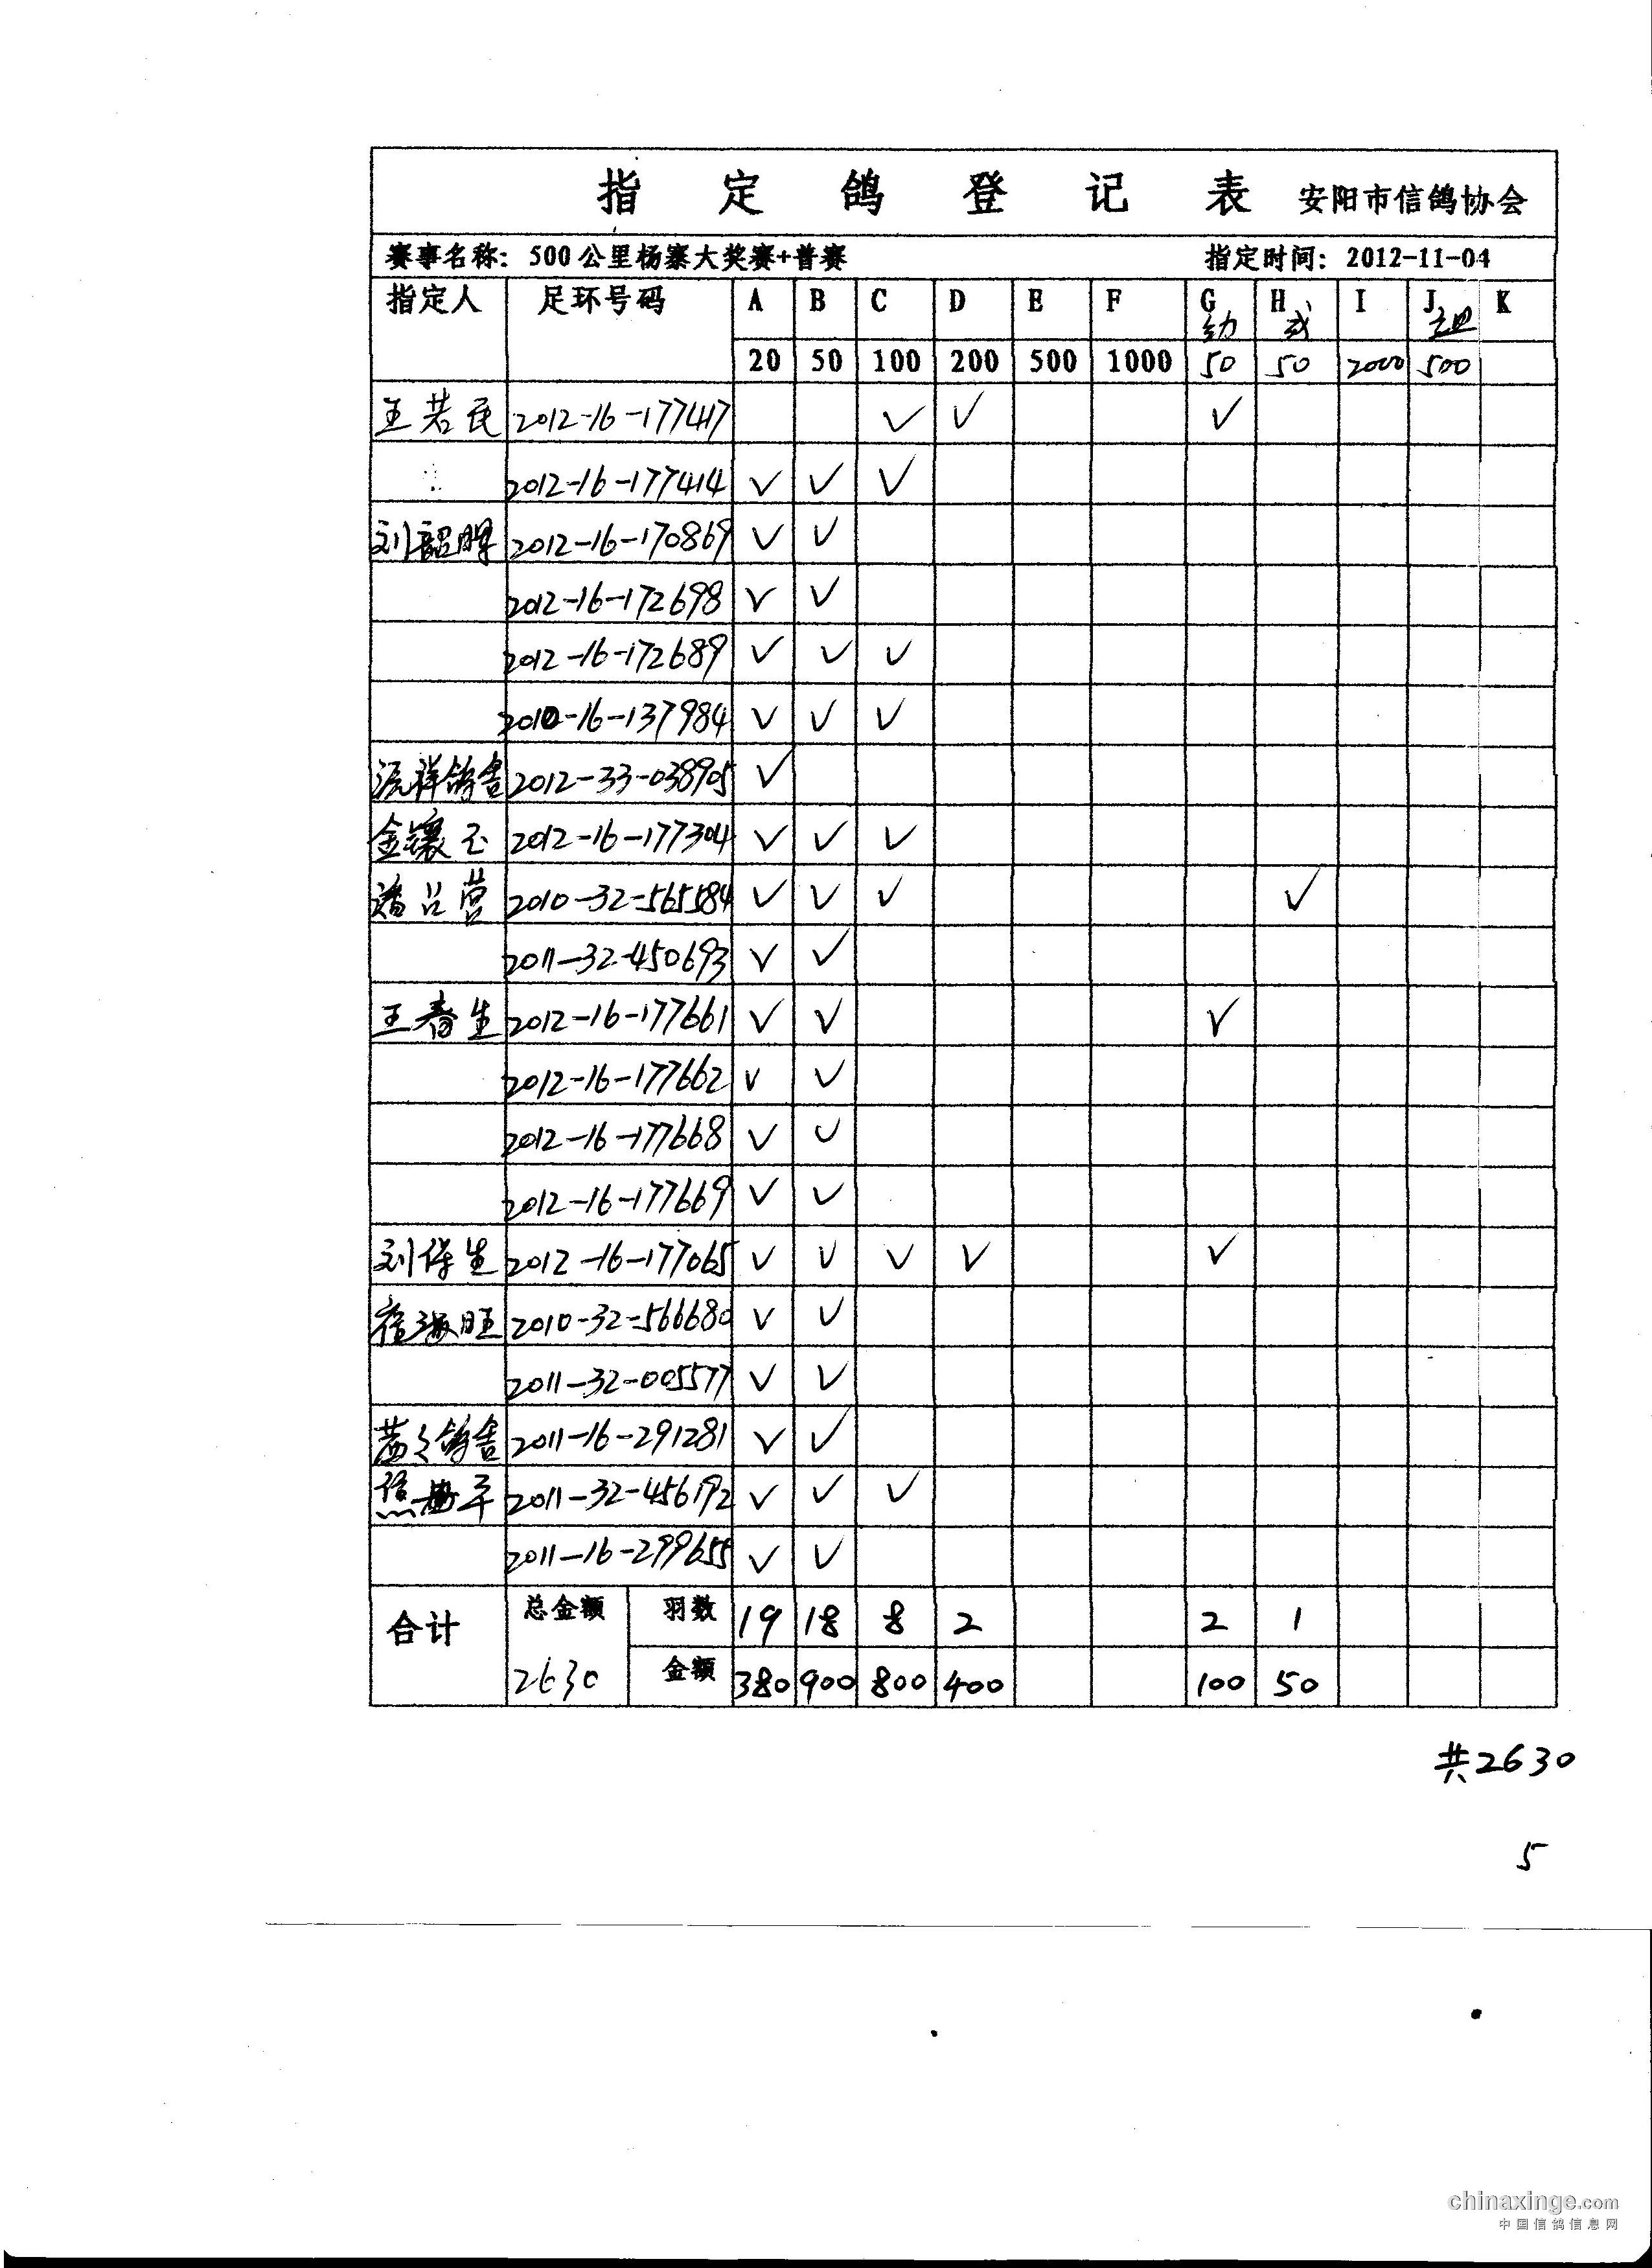 指定鸽登记表 安阳市信鸽协会
赛事名称：500公里杨寨大奖赛+普赛 指定时间：2012-11-04
指定人 足环号码 A B C D E F G幼 H成 I J K
20 50 100 200 500 1000 50 50 2000 500
王若民 2012-16-177417 ✓ ✓ ✓
2012-16-177414 ✓ ✓ ✓
刘韶 2012-16-170869 ✓ ✓
2012-16-172698 ✓ ✓
2012-16-172689 ✓ ✓ ✓
2010-16-137984 ✓ ✓ ✓
祥鸽舍 2012-33-038905 ✓
金镶玉 2012-16-177304 ✓ ✓ ✓
潘营 2010-32-565584 ✓ ✓ ✓ ✓
2011-32-450693 ✓ ✓
王春生 2012-16-177661 ✓ ✓ ✓
2012-16-177662 ✓ ✓
2012-16-177668 ✓ ✓
2012-16-177669 ✓ ✓
刘保生 2012-16-177065 ✓ ✓ ✓ ✓ ✓
海旺 2010-32-566680 ✓ ✓
2011-32-005577 ✓ ✓
鸽舍 2011-16-291281 ✓ ✓
2011-32-456192 ✓ ✓ ✓
2011-16-299655 ✓ ✓
合计 总金额 羽数 19 18 8 2 2 1
2630 金额 380 900 800 400 100 50
共2630
5
chinaxinge.com
中国信鸽信息网